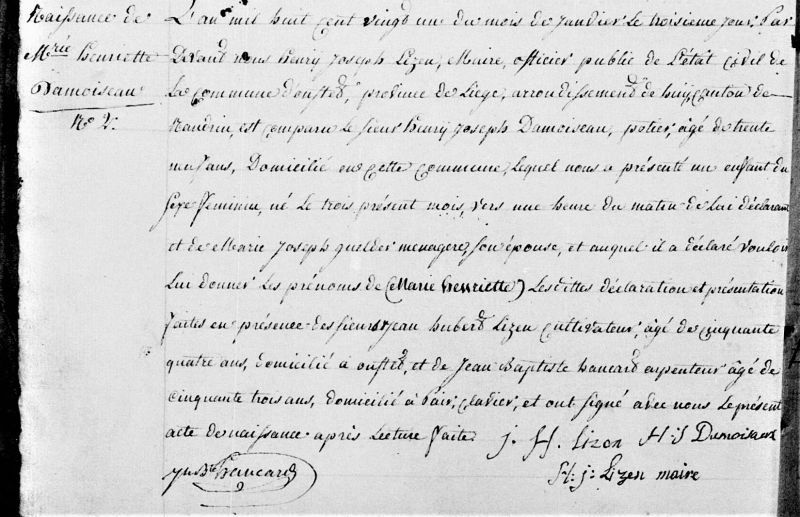 Naissance de
Mrie henriette
Damoiseau
No 2.
L'an mil huit cent vingt un du mois de Janvier Le troisieme jour Par
Devant nous henry Joseph Lizen, Maire, officier public de L'état Civil de
La Commune d'ouffet, province de Liege, arrondissement de huy, Canton de
Nandrin, est comparu Le sieur henry Joseph Damoiseau, potier, âgé de trente
neuf ans, Domicilié en cette Commune, Lequel nous a présenté un enfant du
sexe feminin, né Le trois présent mois, vers une heure du matin de Lui déclarant
et de Marie Joseph quelder menagere, son épouse, et auquel il a déclaré vouloir
Lui donner Les prénoms de (Marie henriette) Les dittes déclaration et présentation
faites en présence des sieurs Jean hubert Lizen Cultivateur, âgé de cinquante
quatre ans, domicilié à ouffet, et de Jean Baptiste hancard arpenteur âgé de
Cinquante trois ans, domicilié à Clavier, et ont signé avec nous Le présent
acte de naissance après Lecture faite J. H. Lizen H. J Damoiseau
jn Bte hancard
H: j: Lizen maire